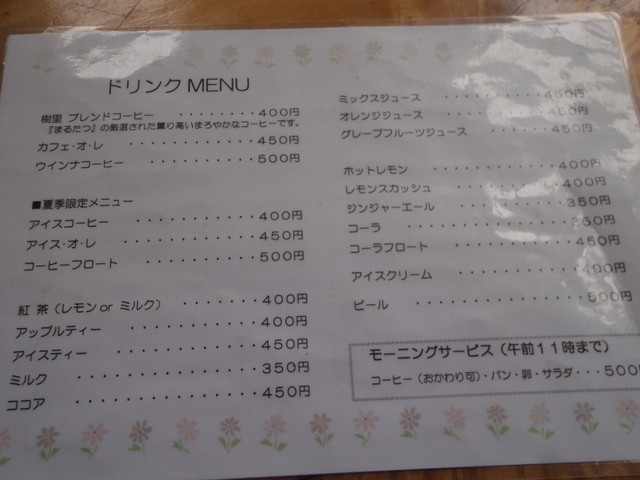 ドリンク MENU
樹里 ブレンドコーヒー ・・・・・・・・400円
『まるたつ』の厳選された薫り高いまろやかなコーヒーです。
カフェ・オ・レ ・・・・・・・・・・・450円
ウインナコーヒー ・・・・・・・・・・500円
■夏季限定メニュー
アイスコーヒー ・・・・・・・・・・・400円
アイス・オ・レ ・・・・・・・・・・・450円
コーヒーフロート ・・・・・・・・・・500円
紅 茶（レモン or ミルク） ・・・・・・・400円
アップルティー ・・・・・・・・・・・400円
アイスティー ・・・・・・・・・・・・450円
ミルク ・・・・・・・・・・・・・・・350円
ココア ・・・・・・・・・・・・・・・450円
ミックスジュース ・・・・・・・・・・450円
オレンジジュース ・・・・・・・・・・450円
グレープフルーツジュース ・・・・・・450円
ホットレモン ・・・・・・・・・・・・400円
レモンスカッシュ ・・・・・・・・・・400円
ジンジャーエール ・・・・・・・・・・350円
コーラ ・・・・・・・・・・・・・・・350円
コーラフロート ・・・・・・・・・・・450円
アイスクリーム ・・・・・・・・・・・400円
ビール ・・・・・・・・・・・・・・・500円
モーニングサービス（午前11時まで）
コーヒー（おかわり可）・パン・卵・サラダ・・・500円